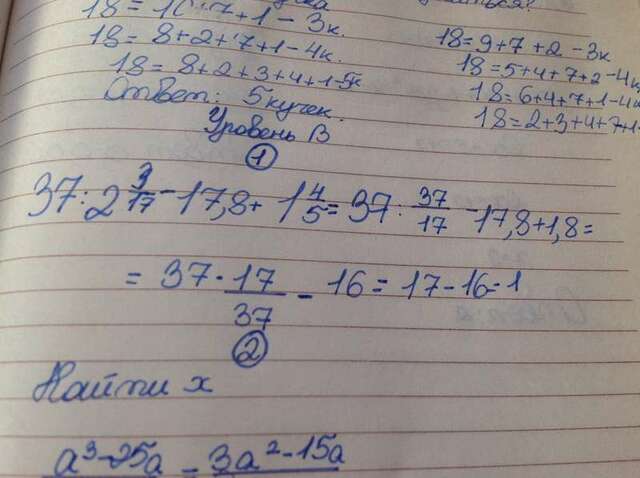 18 = 10+7+1 - 3к.
18 = 8+2+7+1 - 4к.
18 = 8+2+3+4+1 - 5к
Ответ: 5 кучек.
18 = 9+7+2 - 3к
18 = 5+4+7+2 - 4к
18 = 6+4+7+1 - 4к
18 = 2+3+4+7+1
Уровень В
①
37 : 2 3/17 - 17,8 + 1 4/5 = 37 : 37/17 - 17,8 + 1,8 =
= 37 · 17/37 - 16 = 17 - 16 = 1
②
Найти x
a³ - 25a = 3a² - 15a